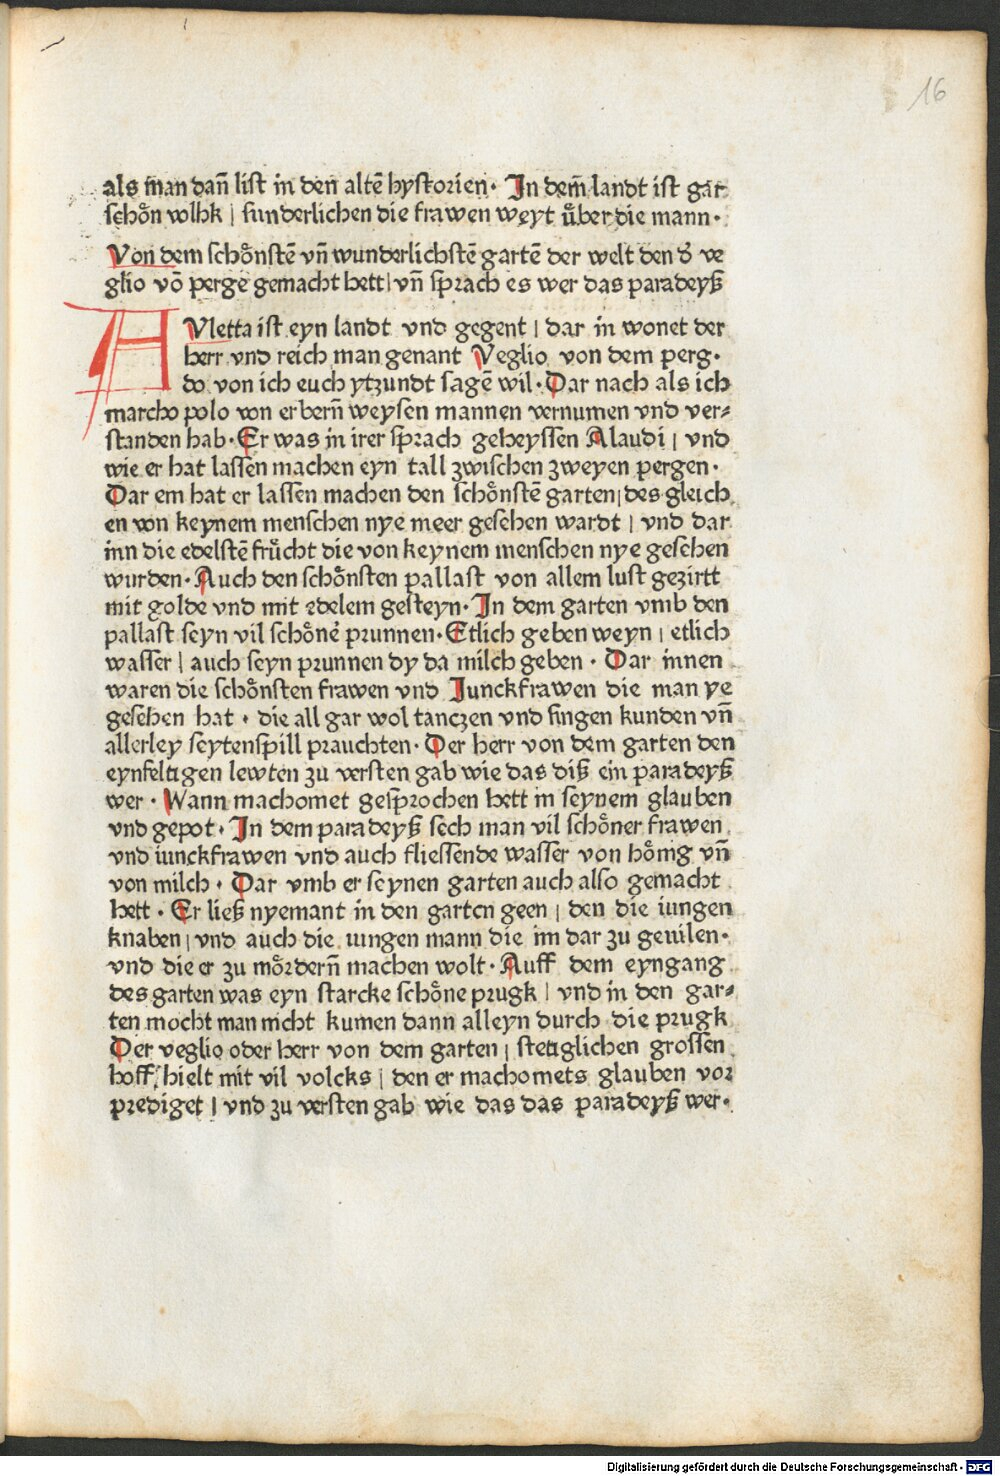 16
als man dañ list in den altē hystorien· In dem̄ landt ist gar
schoͤn volhk | sunderlichen die frawen weyt uͤber die mann·
Von dem schoͤnstē vñ wunderlichstē gartē der welt den d̕ ve
glio vō perge gemacht hett | vñ sprach es wer das paradeyß
AVletta ist eyn landt vnd gegent | dar in wonet der
herr vnd reich man genant Veglio von dem perg·
do von ich euch ytzundt sagē wil· Dar nach als ich
marcho polo von erbern̄ weysen mannen vernumen vnd ver⸗
standen hab· Er was in irer sprach geheyssen Alaudi | vnd
wie er hat lassen machen eyn tall zwischen zweyen pergen·
Dar em hat er lassen machen den schoͤnstē garten | des gleich
en von keynem menschen nye meer gesehen wardt | vnd dar
inn die edelstē fruͤcht die von keynem menschen nye gesehen
wurden· Auch den schoͤnsten pallast von allem lust gezirtt
mit golde vnd mit edelem gesteyn· In dem garten vmb den
pallast seyn vil schoͤne prunnen· Etlich geben weyn | etlich
wasser | auch seyn prunnen dy da milch geben · Dar innen
waren die schoͤnsten frawen vnd Junckfrawen die man ye
gesehen hat · die all gar wol tanczen vnd singen kunden vñ
allerley seytenspill prauchten· Der herr von dem garten den
eynfeltigen lewten zu versten gab wie das diß ein paradeyß
wer · Wann machomet gesprochen hett in seynem glauben
vnd gepot· In dem paradeyß sech man vil schoͤner frawen
vnd iunckfrawen vnd auch fliessende wasser von hoͤnig vñ
von milch · Dar vmb er seynen garten auch also gemacht
hett · Er ließ nyemant in den garten geen | den die iungen
knaben | vnd auch die iungen mann die im dar zu geuilen·
vnd die er zu moͤrdern̄ machen wolt· Auff dem eyngang
des garten was eyn starcke schoͤne prugk | vnd in den gar⸗
ten mocht man nicht kumen dann alleyn durch die prugk
Der veglio oder herr von dem garten | stetiglichen grossen
hoff hielt mit vil volcks | den er machomets glauben vor
prediget | vnd zu versten gab wie das das paradeyß wer·
Digitalisierung gefördert durch die Deutsche Forschungsgemeinschaft - DFG